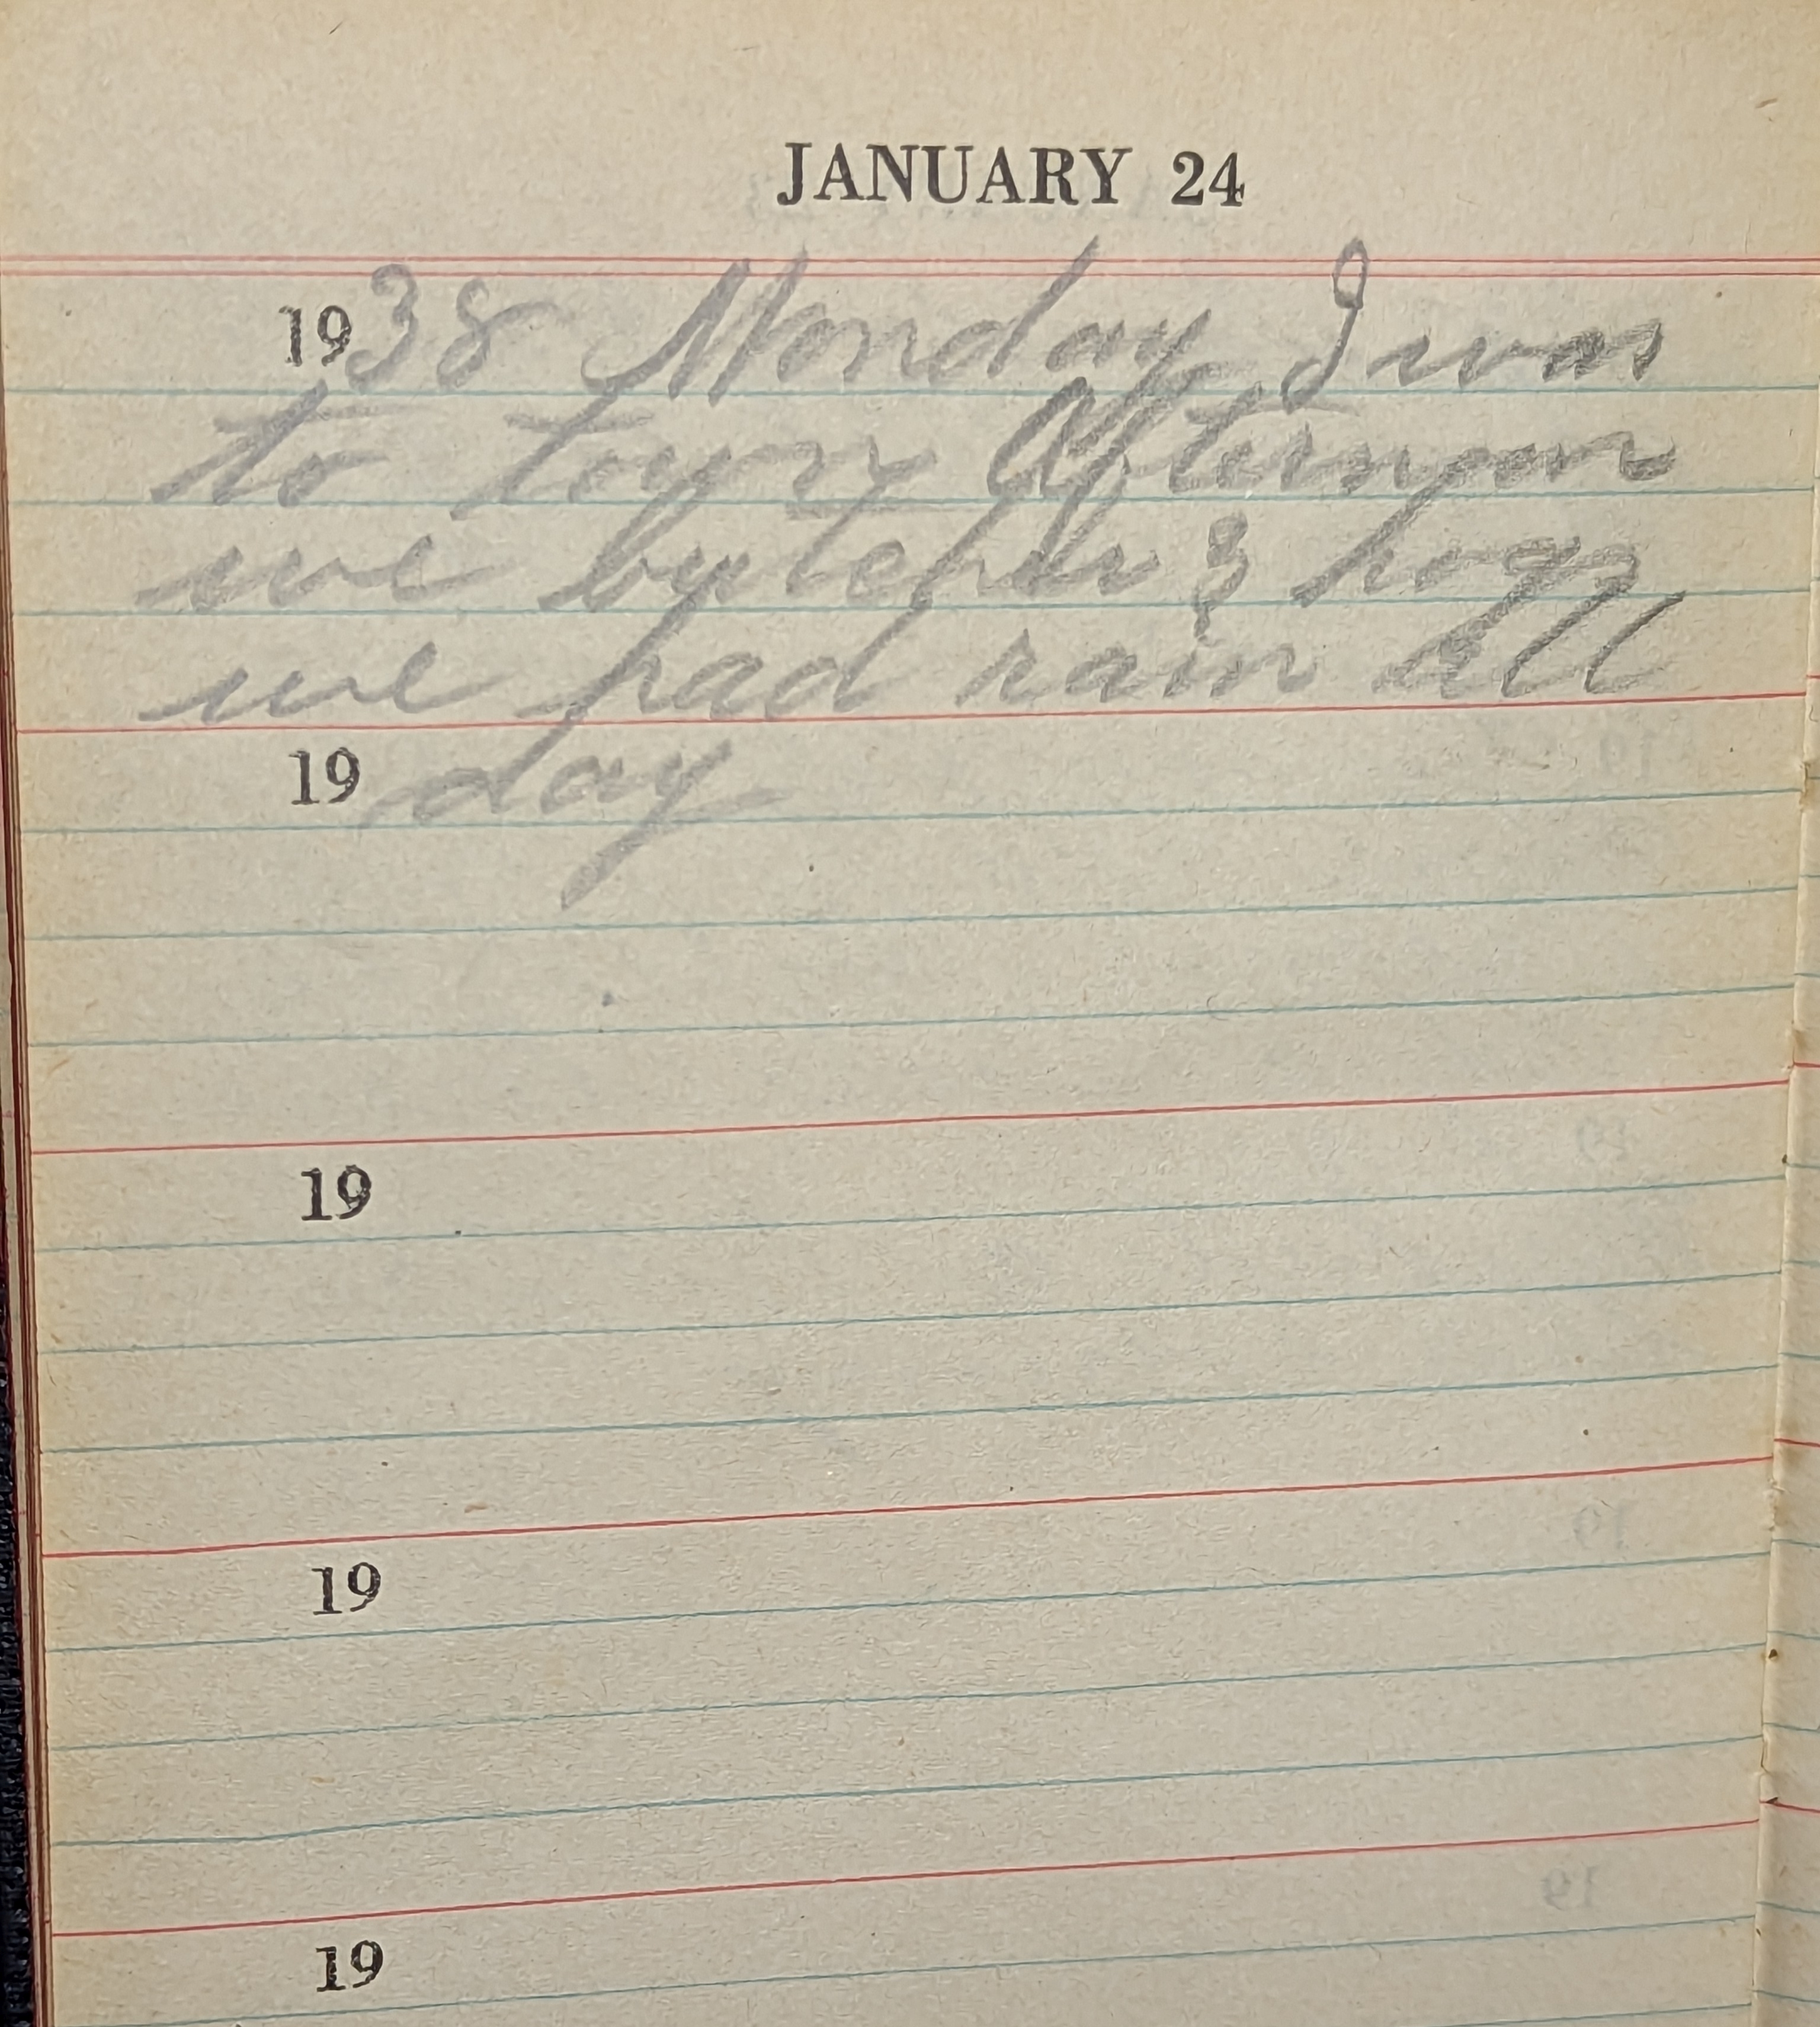 JANUARY 24
1938 Monday I was
to town Afternoon
we butcher 3 hogs
we had rain all
19 day
19
19
19